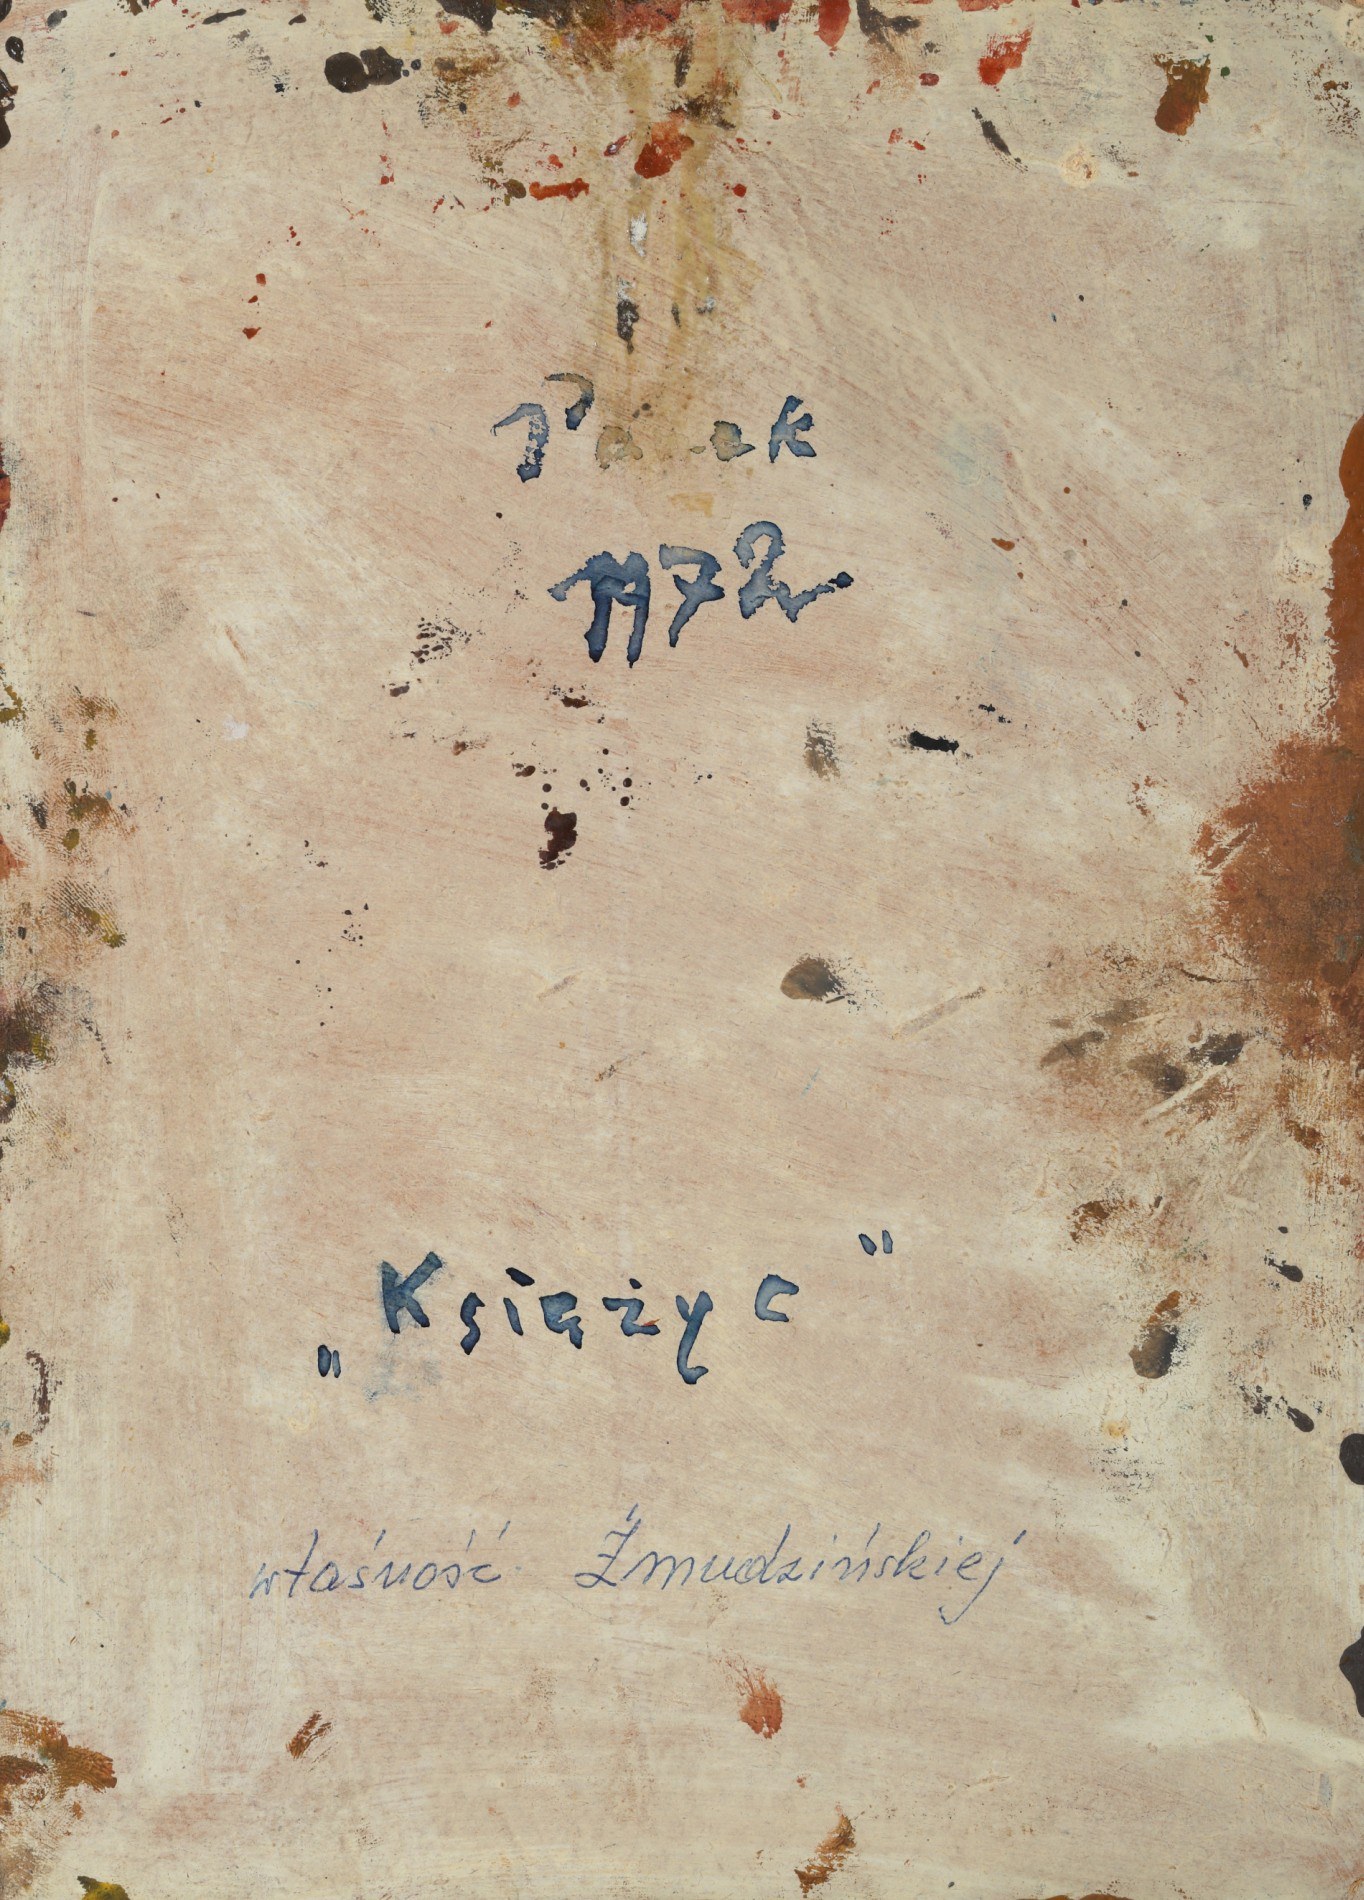 Panek
1972
„Księżyc"
własność Żmudzińskiej